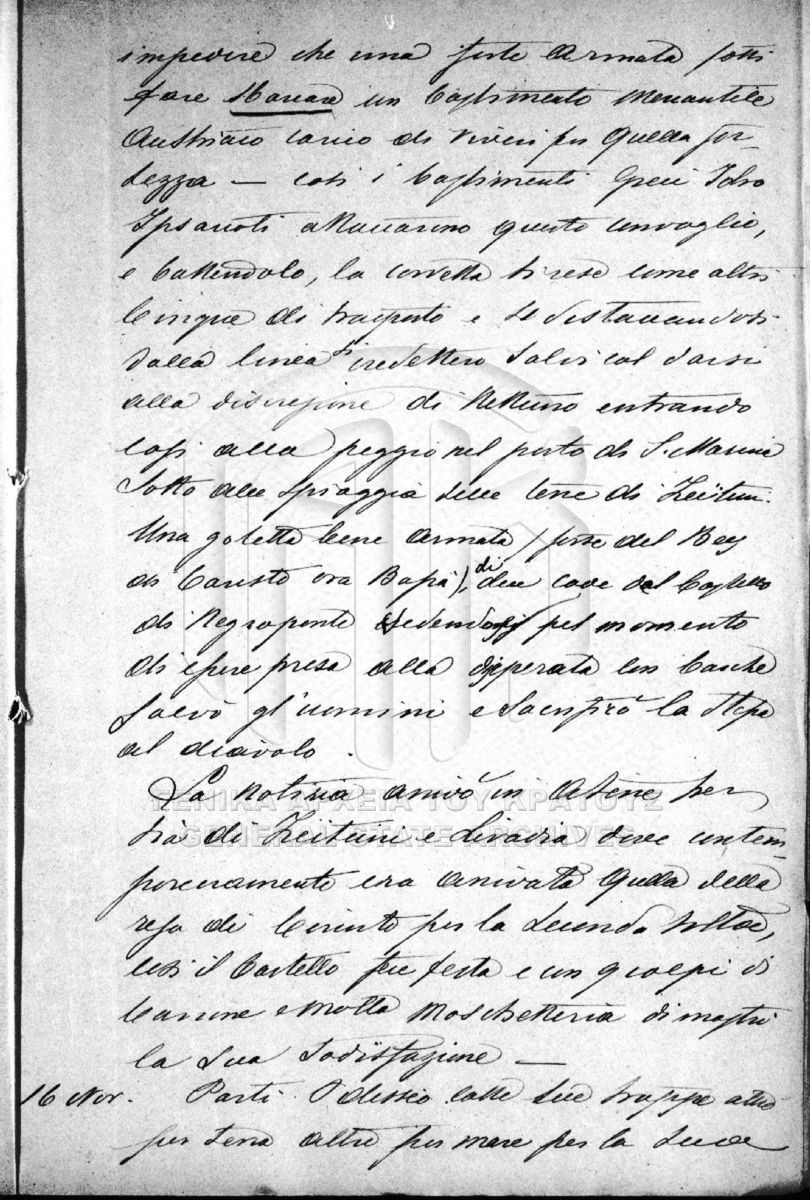 impedire che una forte Armata fotti
fare Mancare un Bastimento Mercantile
Austriaco carico di viveri per quella for-
tezza — così i Bastimenti Greci Idro
Ipsarioti attaccarono questo convoglio,
e battendolo, la corvetta si rese come altri
cinque di trasporto e 10 distaccandosi
dalla linea si credettero salvi col darsi
alla discrezione di Nettuno entrando
così alla peggio nel porto di S. Marina
sotto alle spiaggia delle terre di Zeituni.
Una goletta bene armata / forse del Bey
di Caristo ora Bapà), di due code del Castello
di Negroponte vedendosi pel momento
di essere presa alla disperata con barche
salvò gl'uomini e sacrificò la stessa
al diavolo.
La notizia arrivò in Atene per
via di Zeituni e Livadia dove contem-
poraneamente era arrivata quella della
resa di Corinto per la seconda volta,
così il Castello fece festa e con 9 colpi di
Canone e molta Moschetteria dimostrò
la sua sodisfazione —
16 Nov. Partì Odisseo colle sue truppe altri
per terra altri per mare per la sua
ΓΕΝΙΚΑ ΑΡΧΕΙΑ ΤΟΥ ΚΡΑΤΟΥΣ
GENERAL STATE ARCHIVES